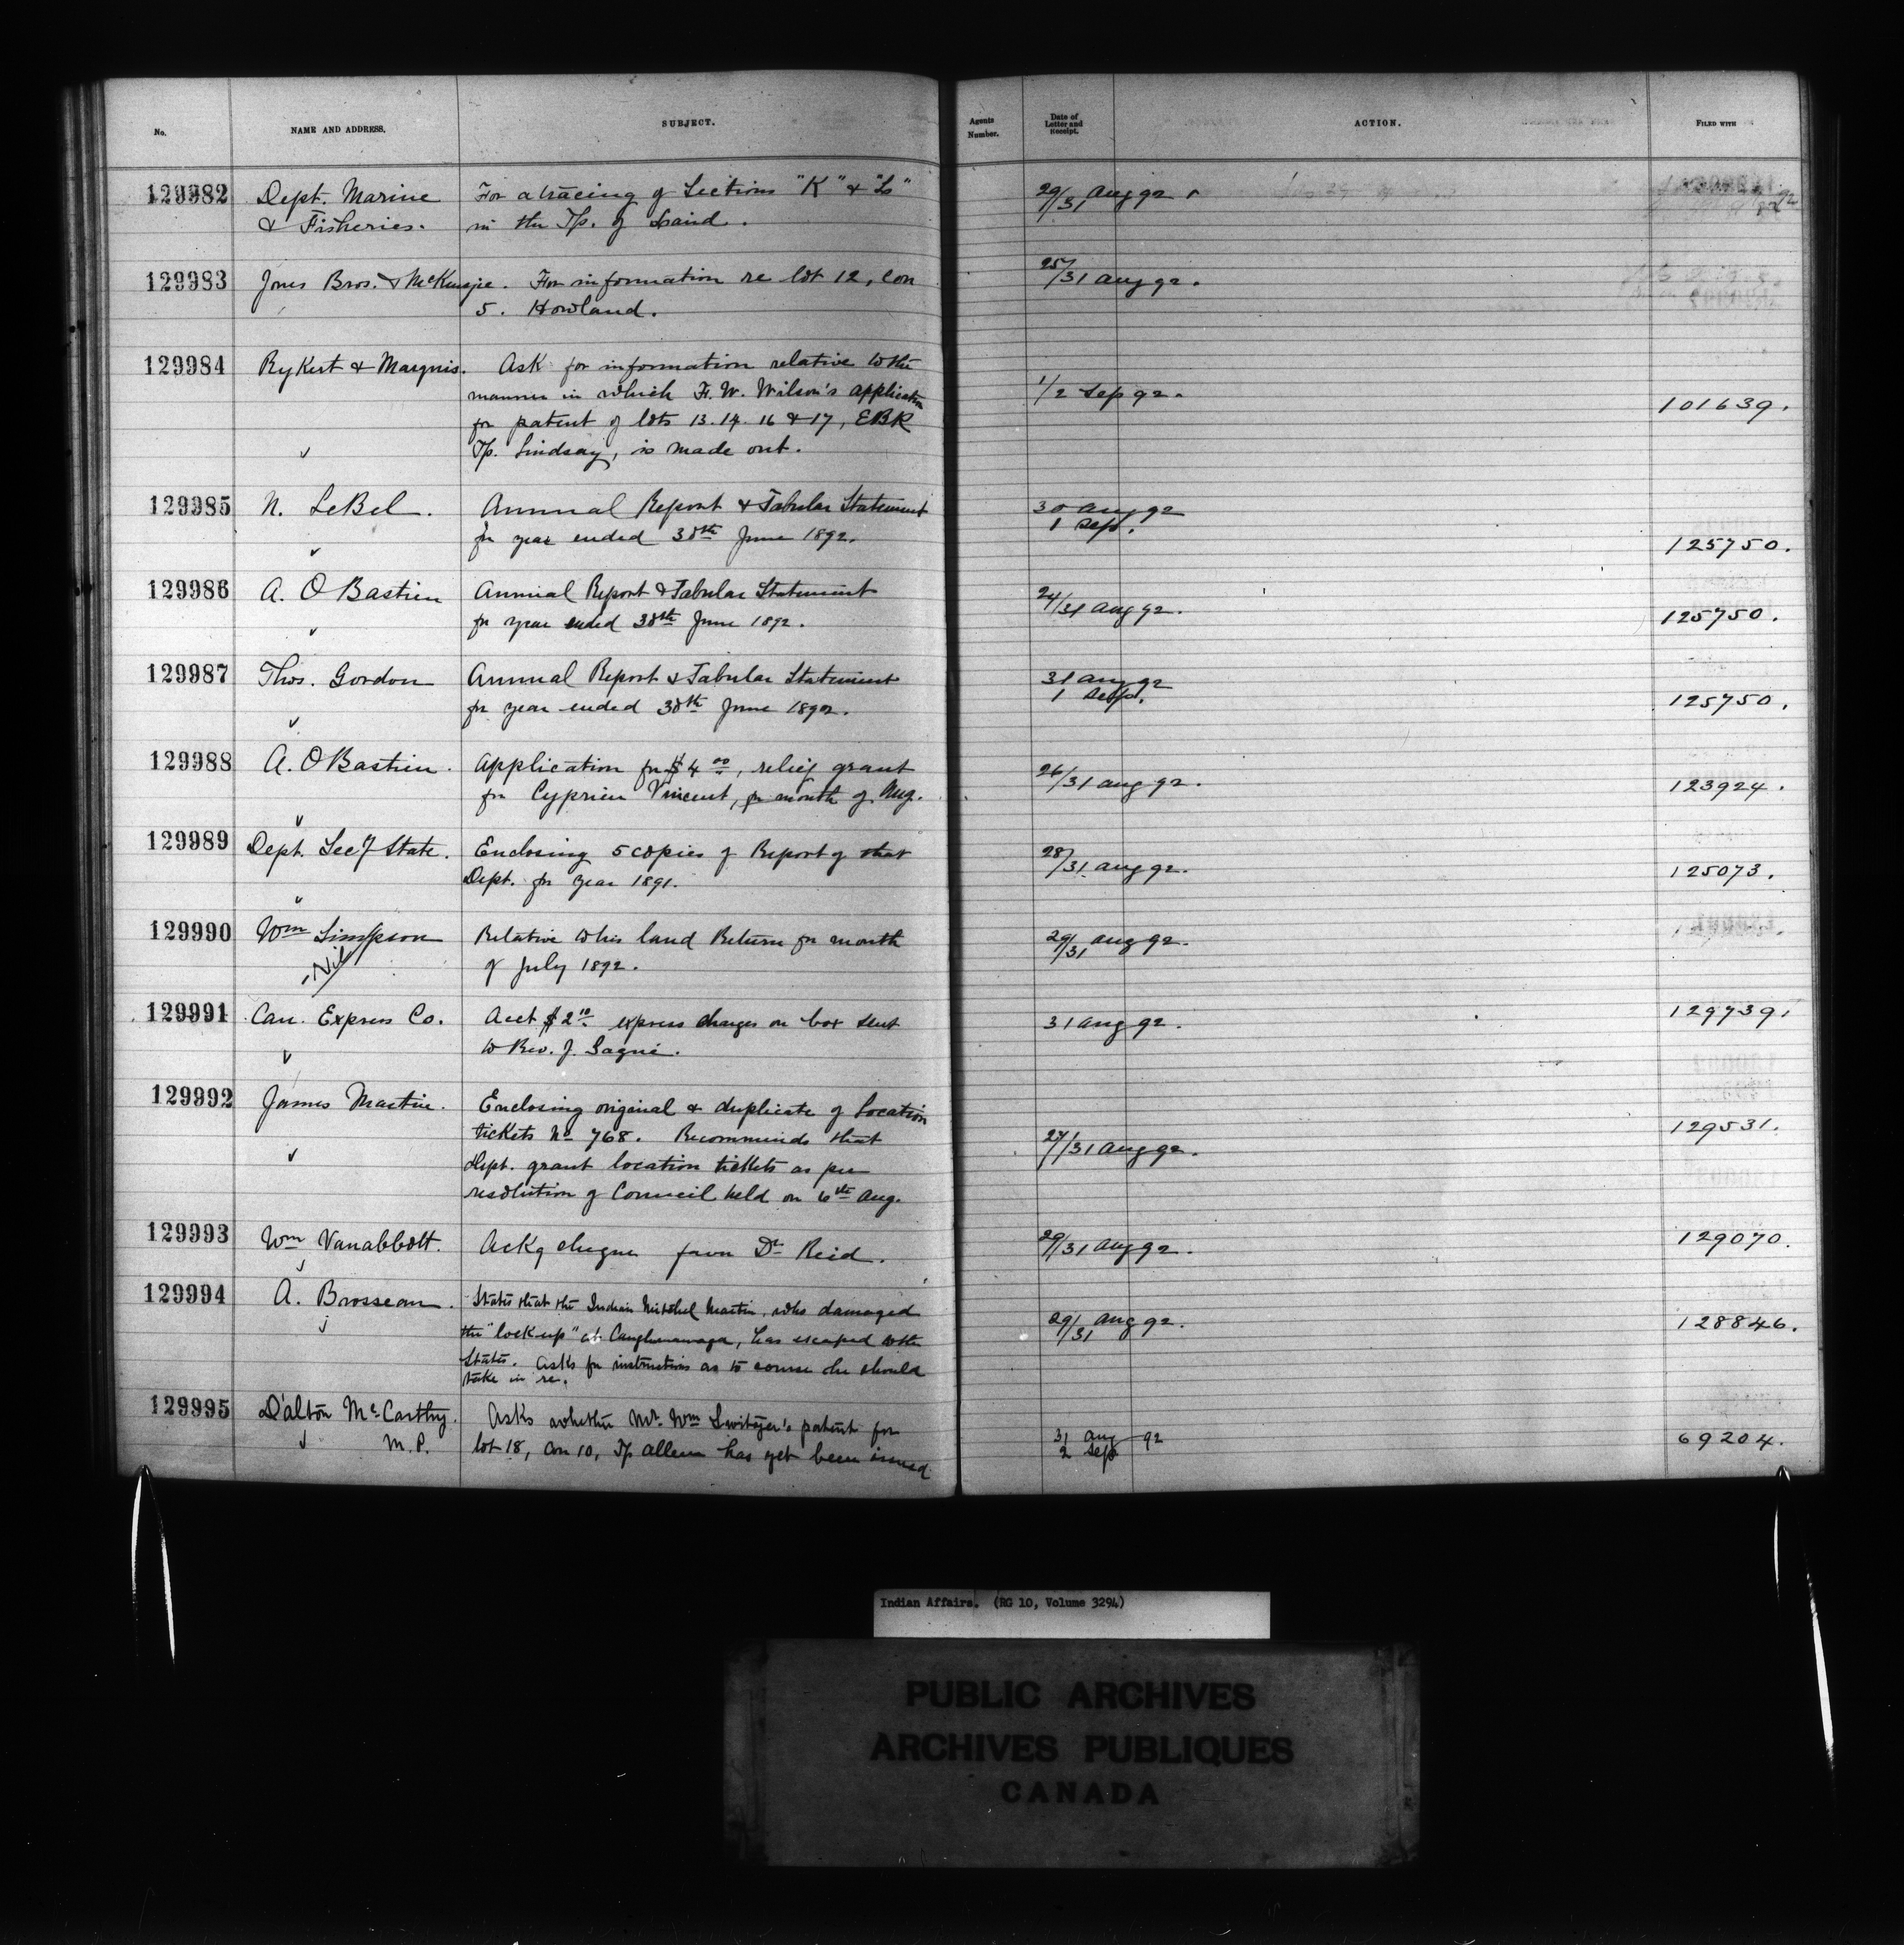 No. NAME AND ADDRESS. SUBJECT. Agents Number. Date of Letter and Receipt. ACTION. FILED WITH
129982 Dept. Marine For a tracing of Sections "K" & "L" 29/31 Aug 92
& Fisheries. in the Tp. of Laird.
129983 Jones Bros. & McKenzie. For information re lot 12, Con 25/31 Aug 92.
5. Howland.
129984 Rykert & Marquis. Ask for information relative to the
manner in which F. W. Wilson's application 1/2 Sep 92. 101639.
for patent of lots 13. 14. 16 & 17, EBR
Tp. Lindsay, is made out.
129985 N. LeBel. Annual Report & Tabular Statement 30 Aug 92
for year ended 30th June 1892. 1 Sept. 125750.
129986 A. O Bastien Annual Report & Tabular Statement 24/31 Aug 92.
for year ended 30th June 1892. 125750.
129987 Thos. Gordon Annual Report & Tabular Statement 31 Aug 92
for year ended 30th June 1892. 1 Sept. 125750.
129988 A. O Bastien. Application for $4 00, relief grant 26/31 Aug 92.
for Cyprien Vincent, for month of Aug. 123924.
129989 Dept. Secy State. Enclosing 5 copies of Report of that 28/31 Aug 92.
Dept. for year 1891. 125073.
129990 Wm Simpson Relative to his land Return for month 29/31 Aug 92.
Nil of July 1892.
129991 Can. Express Co. Acct $2 10 express charges on box sent 31 Aug 92. 129739.
to Rev. J. Gagné.
129992 James Martin. Enclosing original & duplicate of Location 129531.
tickets No 768. Recommends that 27/31 Aug 92.
Dept. grant location tickets as per
resolution of Council held on 6th Aug.
129993 Wm Vanabbott. Ackg cheque favor Dr Reid. 29/31 Aug 92. 129070.
129994 A. Brosseau. States that the Indian Mitchel Martin, who damaged
the "lock-up" at Caughnawaga, has escaped to the 29/31 Aug 92. 128846.
States. Asks for instructions as to course he should
take in re.
129995 Dalton McCarthy. Asks whether Mr. Wm Switzer's patent for
M.P. lot 18, Con 10, Tp Allen has yet been issued 31 Aug 92 2 Sept 69204.
Indian Affairs. (RG 10, Volume 3294)
PUBLIC ARCHIVES
ARCHIVES PUBLIQUES
CANADA